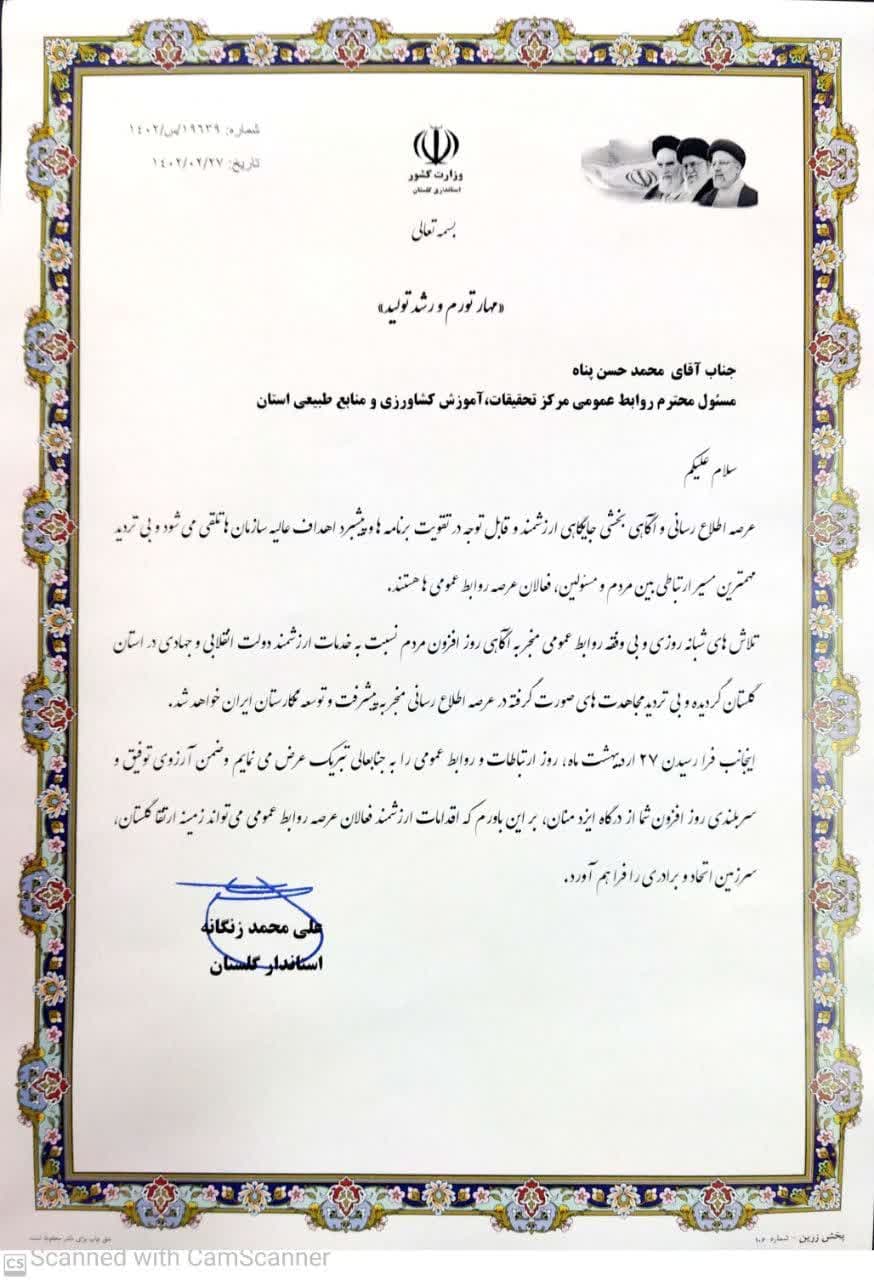 شماره: ۱۹۶۳۹/س/۱۴۰۲
تاریخ: ۱۴۰۲/۰۲/۲۷
وزارت کشور
استانداری گلستان
بسمه تعالی
«مهار تورم و رشد تولید»
جناب آقای محمد حسن پناه
مسئول محترم روابط عمومی مرکز تحقیقات،آموزش کشاورزی و منابع طبیعی استان
سلام علیکم
عرصه اطلاع رسانی و اگاهی بخشی جایگاهی ارزشمند و قابل توجه در تقویت برنامه ها و پیشبرد اهداف عالیه سازمان ها تلقی می شود و بی تردید
مهمترین مسیر ارتباطی بین مردم و مسئولین، فعالان عرصه روابط عمومی ها هستند.
تلاش های شبانه روزی و بی وقفه روابط عمومی منجر به اگاهی روز افزون مردم نسبت به خدمات ارزشمند دولت انقلابی و جهادی در استان
گلستان گردیده و بی تردید مجاهدت های صورت گرفته در عرصه اطلاع رسانی منجر به پیشرفت و توسعه نگارستان ایران خواهد شد.
اینجانب فرا رسیدن ۲۷ اردیبهشت ماه، روز ارتباطات و روابط عمومی را به جنابعالی تبریک عرض می نمایم و ضمن آرزوی توفیق و
سربلندی روز افزون شما از درگاه ایزد منان، بر این باورم که اقدامات ارزشمند فعالان عرصه روابط عمومی می‌تواند زمینه ارتقا گلستان،
سرزمین اتحاد و برادری را فراهم آورد.
علی محمد زنگانه
استاندار گلستان
پخش زرین - شماره ۱۰۶
حق چاپ برای ناشر محفوظ است.
CS Scanned with CamScanner